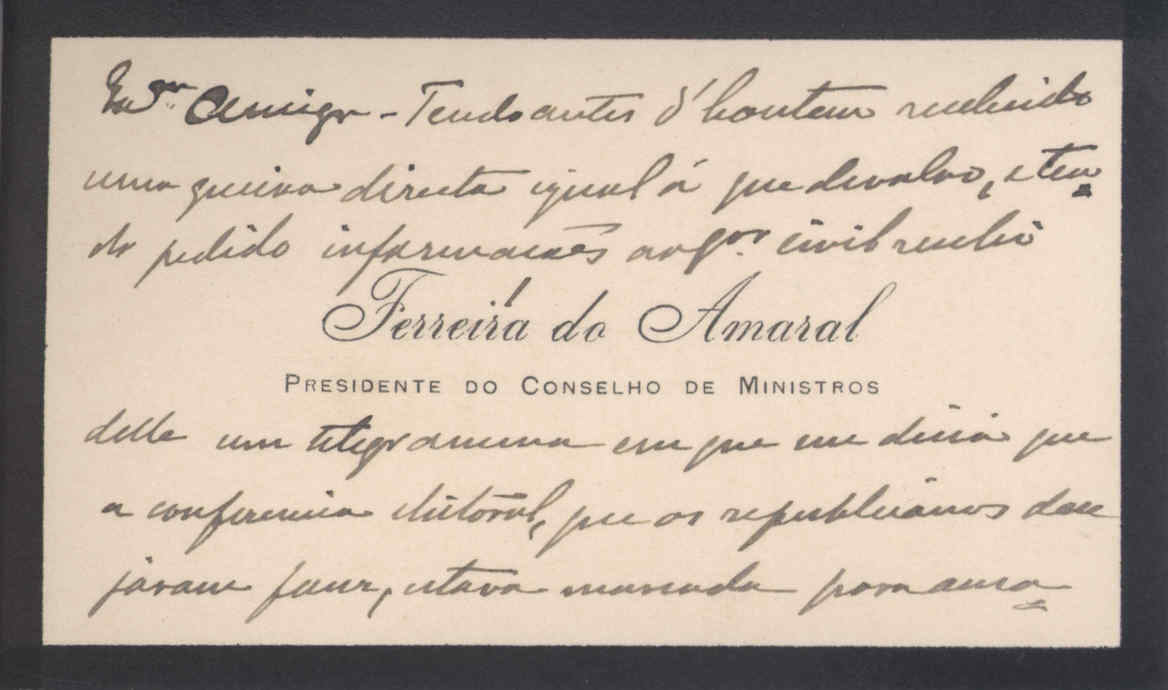 Exmo Snr Amigo - Tendo antes d'hontem recebido
uma queixa directa igual á que devolvo, e ten
do pedido informações ao Gor. civil recebi
Ferreira do Amaral
PRESIDENTE DO CONSELHO DE MINISTROS
delle um telegramma em que me dizia que
a conferencia eleitoral, que os republicanos dese
javam fazer, estava marcada para uma